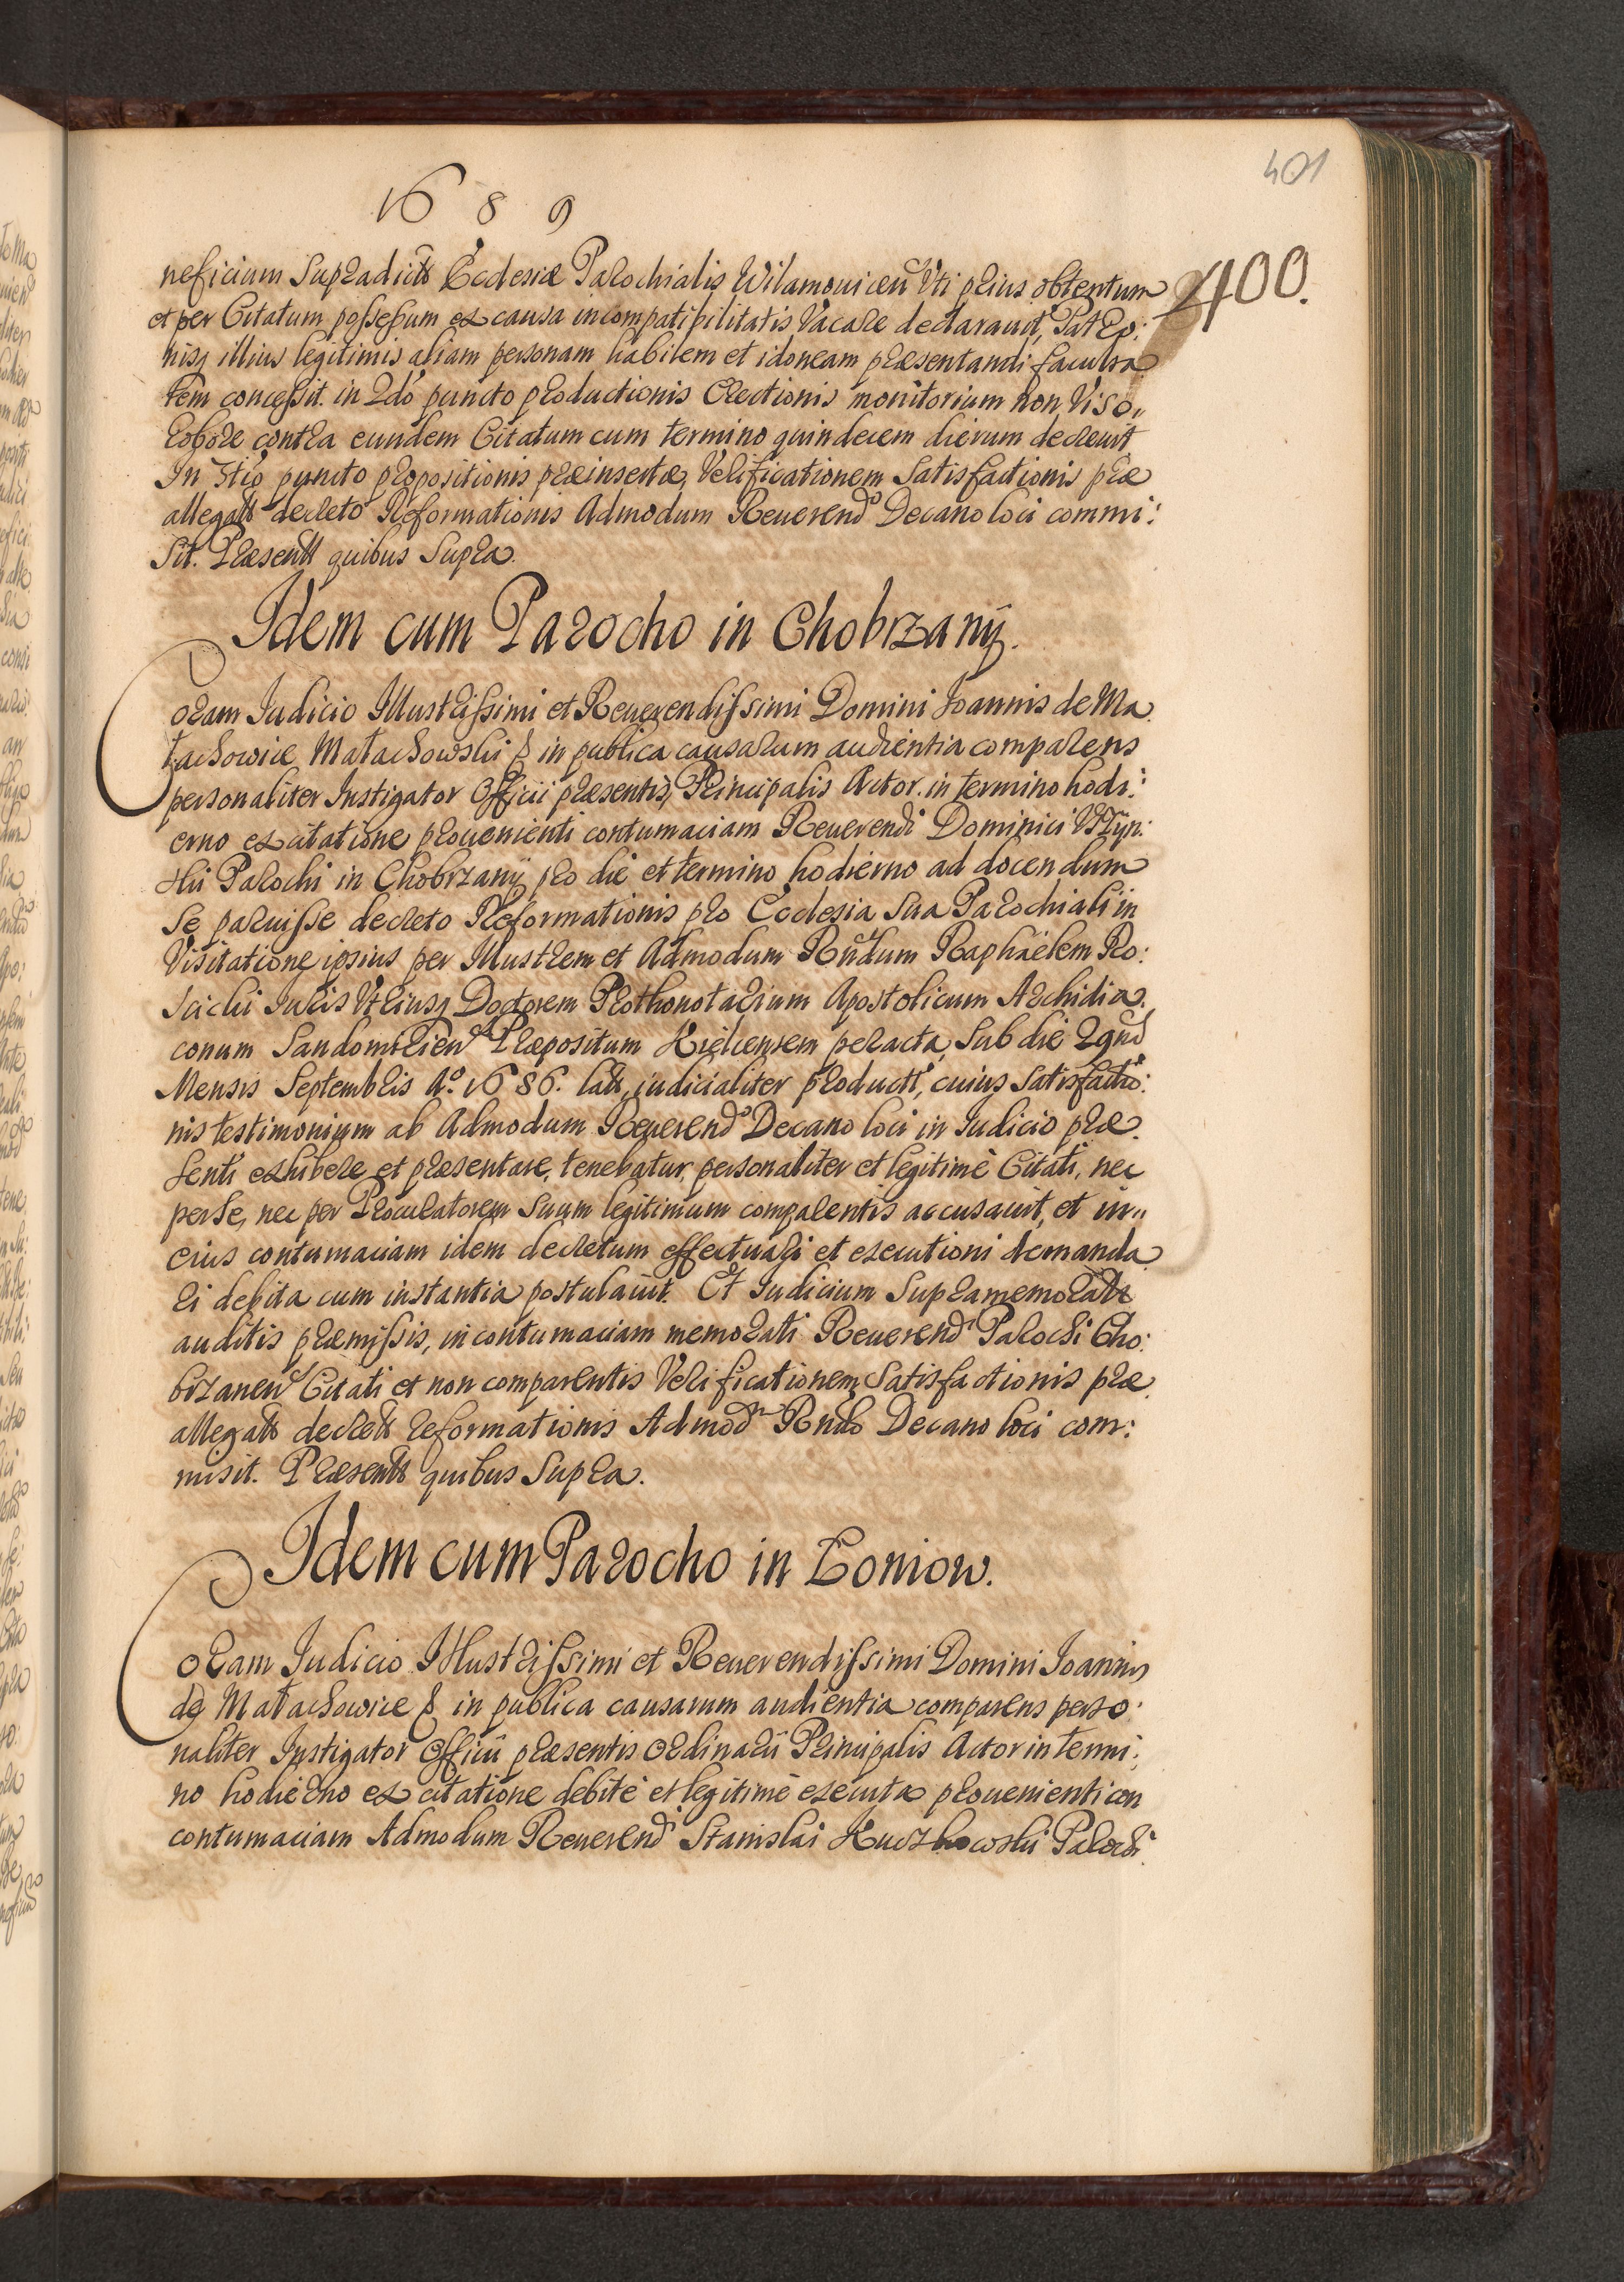 401
1689
400.
neficium supradictæ Ecclesiæ Parochialis Wilamouicen Uti prius obtentum
et per Citatum possessum ex causa incompatibilitatis Vacare declarauit, Patro:
nisq illius legitimis aliam personam habilem et idoneam præsentandi faculta
tem concessit. in 2do puncto productionis Erectionis monitorium non Viso,,
robore contra eundem Citatum cum termino quindecem dierum decreuit
In 3tio puncto propositionis præinsertæ, Verificationem Satisfactionis præ
allegati decreto Reformationis Admodum Reuerendo Decano loci commi:
sit. Præsentt quibus Supra.
Idem cum Parocho in Chobrzany.
Coram Iudicio Illustrissimi et Reuerendissimi Domini Ioannis de Ma
łachowice Małachowski & in publica causarum audientia comparens
personaliter Instigator Officii præsentis, Principalis Actor. in termino hodi:
erno ex citatione prouenienti contumaciam Reuerendi Dominici
Parochi in Chobrzany pro die et termino hodierno ad docendum
Se paruisse decreto Reformationis pro Ecclesia Sua Parochiali in
Visitatione ipsius per Illustrem et Admodum Rndum Raphaëlem Ro:
scicki Iuris Utriusq Doctorem Prothonotarium Apostolicum Archidia.
conum Sandomirien Præpositum Kielcensem peracta, Sub die
Mensis Septembris Ao. 1686. lati, iudicialiter producti, cuius Satisfactio:
nis testimonium ab Admodum Reuerendo Decano loci in Iudicio præ.
senti exhibere et præsentare, tenebatur, personaliter et legitimè Citati, nec
per se, nec per Procuratorem Suum legitimum comparentis accusauit, et in,,
eius contumaciam idem decretum effectuari et executioni demanda
ri debita cum instantia postulauit. Et Iudicium Supramemorati
auditis præmissis, in contumaciam memorati Reuerendi Parochi Cho:
brzanen Citati et non comparentis Verificationem Satisfactionis præ.
allegati decreti reformationis Admod Rndo Decano loci com:
misit. Præsentt quibus Supra.
Idem cum Parocho in Łoniow.
Coram Iudicio Illustrissimi et Reuerendissimi Domini Ioannis
de Małachowice & in publica causarum audientia comparens perso:
naliter Instigator Officii præsentis Ordinarii Principalis Actor in termi:
no hodierno ex citatione debitè et legitimè executa prouenienti con
contumaciam Admodum Reuerendi Stanislai Kuczkowski Parochi